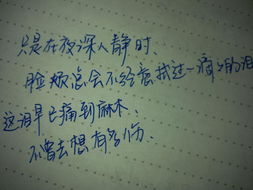 只是在夜深人静时、
脸颊总会不经意拭过一滴々的泪
这泪早已痛到麻木、
不曾去想有多伤